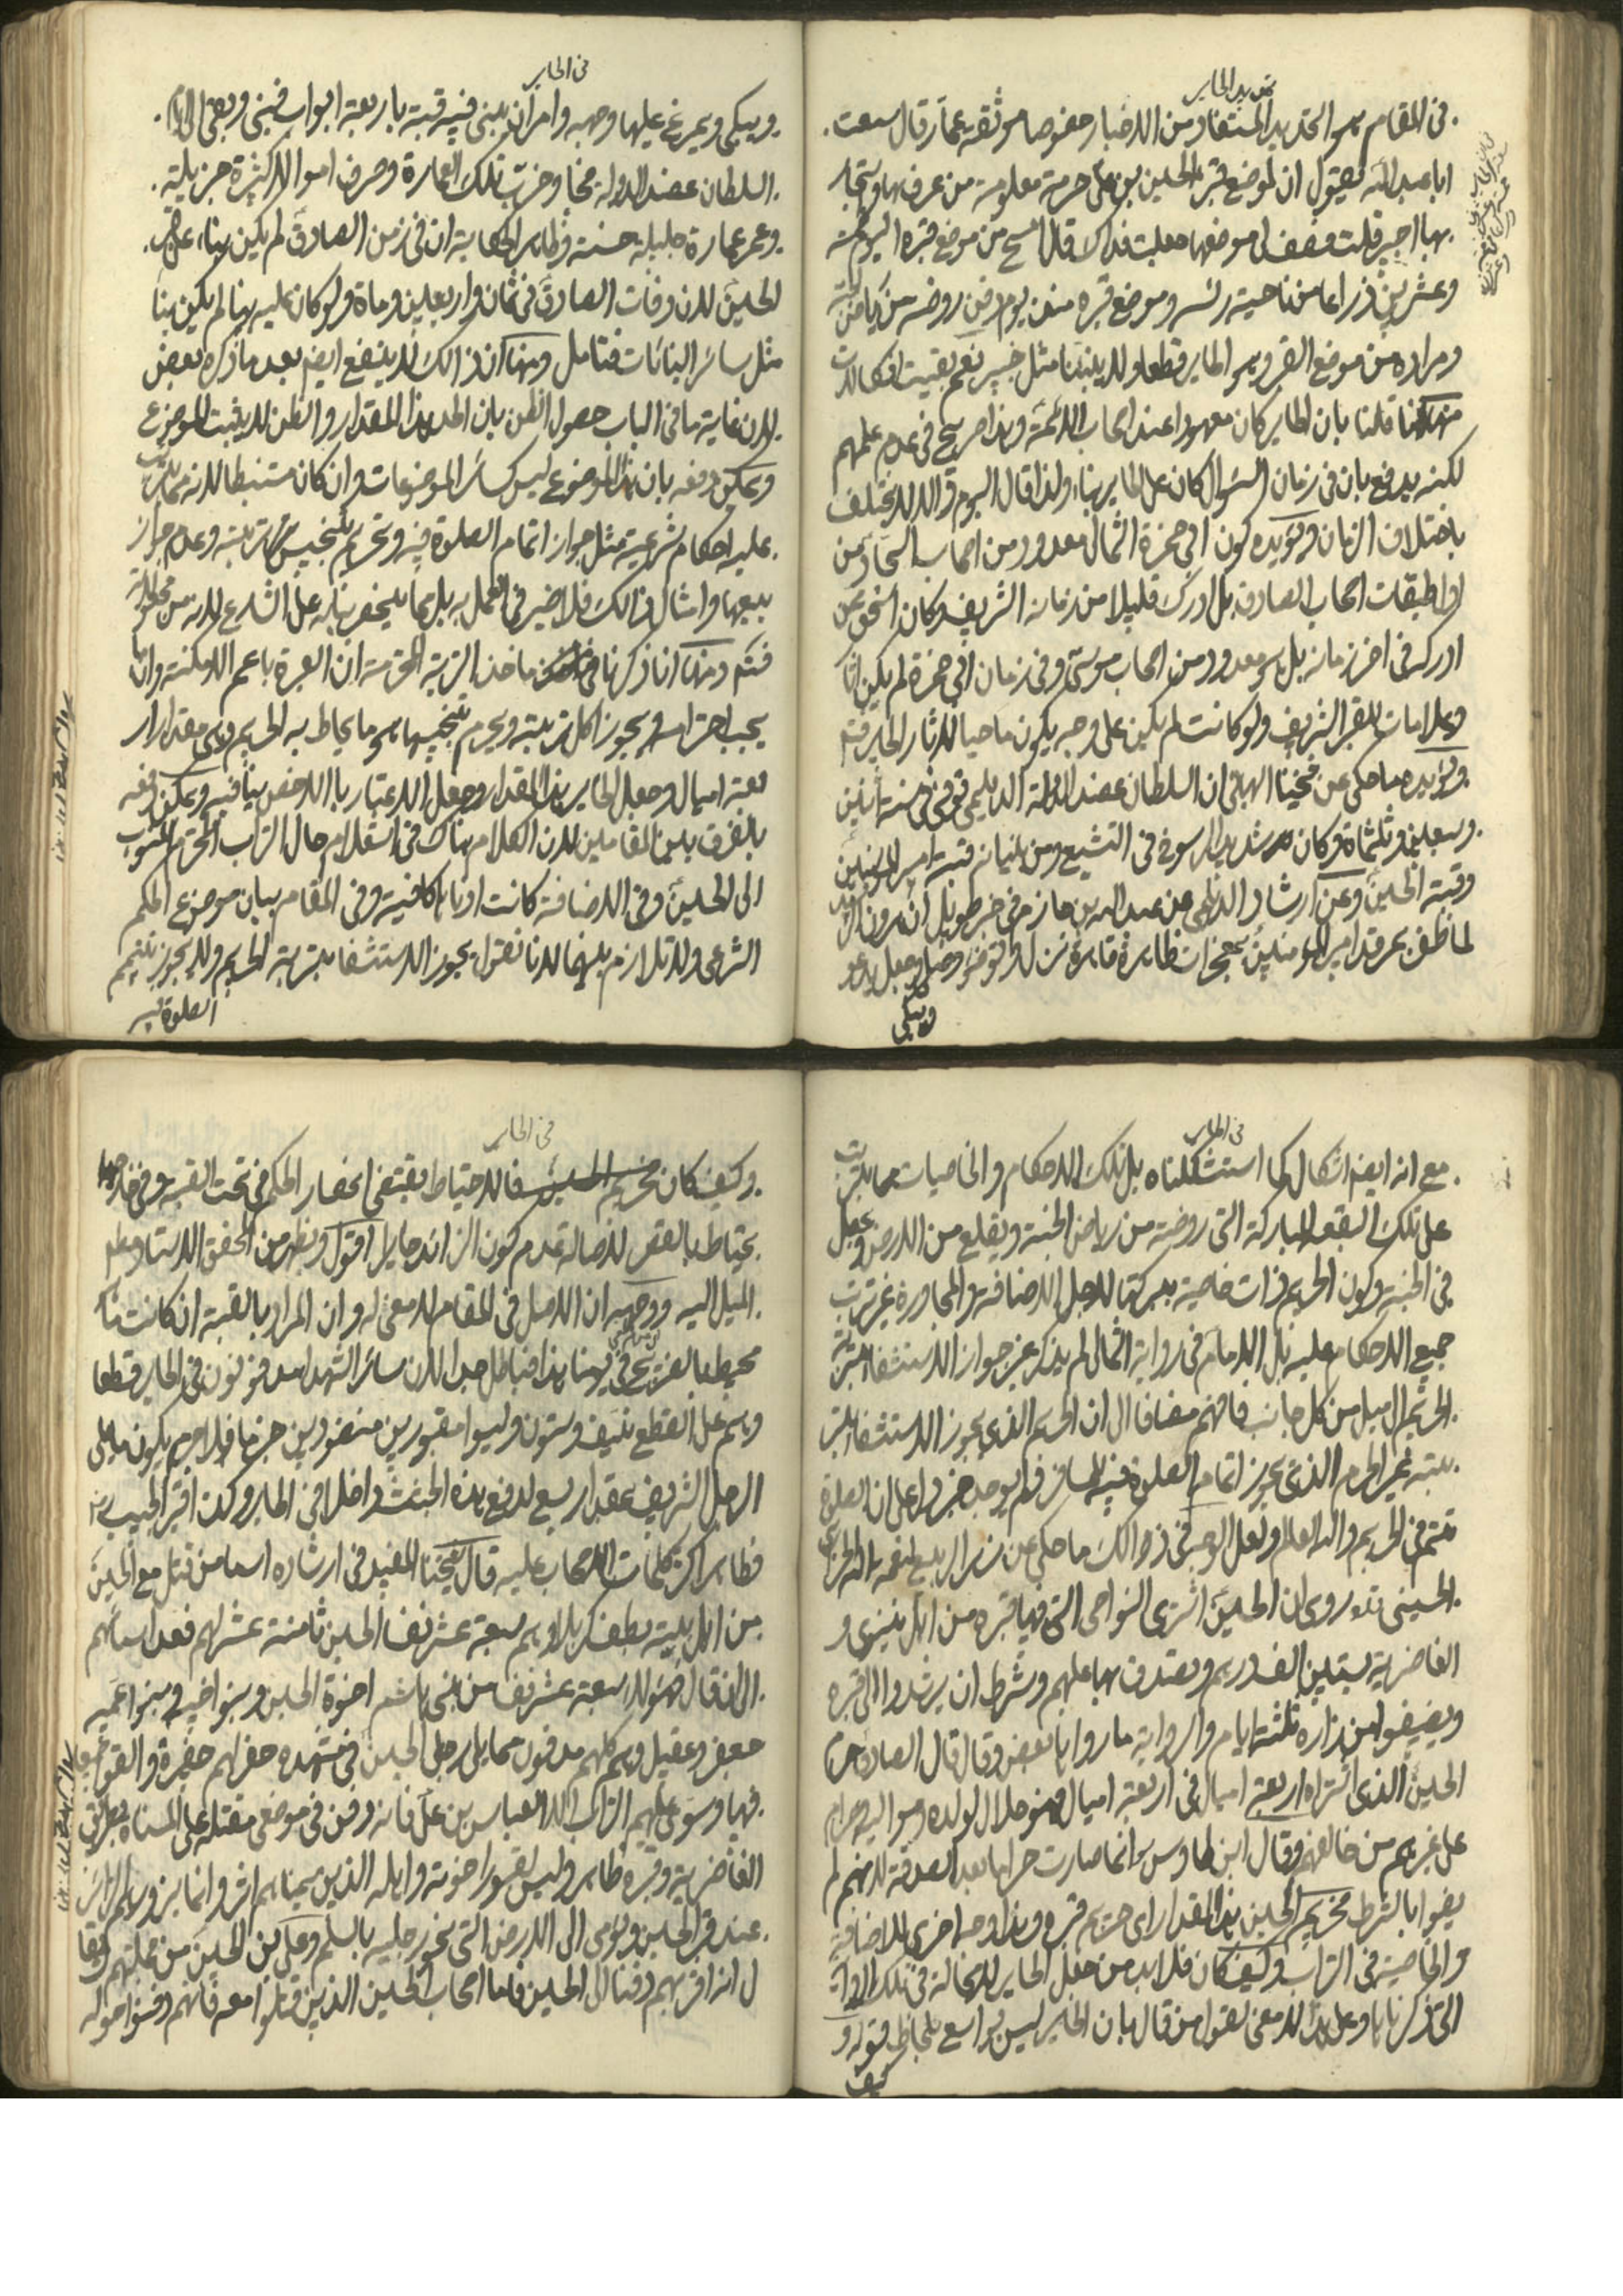 تحديد الحاير
في المقام هو التحديد المستفاد من الاخبار خصوصا موثقة عمار قال سمعت
ابا عبد الله يقول ان لموضع قبر الحسين بن علي حرمة معلومة من عرفها واستجار
بها اجير قلت فصف لي موضعها جعلت فداك قال امسح من موضع قبره اليوم خمسة
وعشرين ذراعا من ناحية راسه وموضع قبره منذ يوم دفن روضة من رياض
ومراده من موضع القبر وهو الحاير قطعا ولا ينبئنا مثل خبير نعم بقيت اشكالات
منها قلنا بان الحاير كان معهودا عند اصحاب الائمة وهذا صريح في عدم علمهم
لكنه يدفع بان في زمان السؤال كان على الحاير بناء ولذا قال اليوم والا لا يختلف
باختلاف الزمان ويؤيده كون ابي حمزة الثمالي معدود من اصحاب السجاد من
طبقات اصحاب الصادق بل ادرك قليلا من زمانه الشريف وكان اسحق ممن
ادركه في اخر زمانه بل هو معدود من اصحاب موسى وفي زمان ابي حمزة لم يكن
وعلامات للقبر الشريف ولو كانت لم يكن على وجه يكون ماحيا لاثار الحاير فتم
ويؤيده ما حكى عن شيخنا البهائي ان السلطان عضد الدولة الديلمي توفي في سنة اثنين
وسبعين وثلثماة وكان شديد الرسوخ في التشيع ومن بنيانه قبة امير المؤمنين
وقبة الحسين وعن ارشاد الديلمي عن عبد الله بن حازم في خبر طويل ان هرون الرشيد
لما ظفر بمرقد امير المؤمنين بمعجزات ظاهرة قاهرة نزل وتوضى وصلى وجعل يدعو
ويبكي
في الحاير
ويبكي ويمرغ عليها وجهه وامر ان يبنى فيه قبة باربعة ابواب فبنى وبقى الى ايام
السلطان عضد الدولة فجا وخرب تلك العمارة وصرف اموالا كثيرة جزيلة
وعمر عمارة جليلة حسنة وظاهر الحكاية ان في زمن الصادق لم يكن بناء على قبر
الحسين لان وفات الصادق في ثمان واربعين وماة ولو كان عليه بنا لم يكن بناء
مثل ساير البنائات فتامل ومنها ان ذالك لا ينفع ايضا بعد ما ذكره بعض
لان غاية ما في الباب حصول الظن بان الحد هذا المقدار والظن لا يثبت الموضوع
ويمكن دفعه بان هذا الموضوع ليس كساير الموضوعات وان كان مستنبطا لانه مما يترتب
عليه احكام شرعية مثل جواز اتمام الصلوة فيه وتحريم تنجيس تربته وعدم جواز
بيعها وامثال ذالك فلا ضير في العمل به بل مما ينحصر بيانه على الشارع لانه من مجعولاته
فتم ومنها انا ذكرنا ماخذ التربة المحترمة ان العبرة باعم الامكنة وان ما
يجب احترامه ويجوز اكل تربته ويحرم تنجيسها هو ما يحاط به الحريم وهي مقدار ار
بعة اميال وجعل الحاير هذا المقدار وجعل الاعتبار بالاخص ينافيه ويمكن دفعه
بالفرق بين المقامين لان الكلام هناك في استعلام حال التراب المحترم المنسوب
الى الحسين وفي الاضافة كانت ادناها كافية وفي المقام بيان موضوع الحكم
الشرعي ولا تلازم بينهما لانا نقول يجوز الاستشفا بتربة الحريم ولا يجوز تتميم
الصلوة فيه
في الحاير
مع انه ايضا اشكال كما استشكلناه بل تلك الاحكام والخاصيات مما يترتب
على تلك البقعة المباركة التي روضة من رياض الجنة ويقلع من الارض ويجعل
في الجنة وكون الحريم ذات خاصية ببركتها لاجل الاضافة والمجاورة غير ترتب
جميع الاحكام عليه بل الامام في رواية الثمالي لم يذكر غير جواز الاستشفا بتربة
الحريم الى ميل من كل جانب فافهم مضافا الى ان الحريم الذي يجوز الاستشفا بتر
بته غير الحرم الذي يجوز اتمام الصلوة فيه للمسافر فلم يوجد خبر دل على ان الصلوة
تتم في الحريم والله العالم ولعل الوجه في ذالك ما حكى عن زهر الربيع لنعمة الله الجزايري
الحسيني روى ان الحسين اشترى النواحي التي فيها قبره من اهل نينوى و
الغاضرية بستين الف درهم وتصدق بها عليهم وشرط ان يرشدوا الى قبره
ويضيفوا من زاره ثلثة ايام والرواية ما رواها بعض وقال قال الصادق حرم
الحسين الذي اشتراه اربعة اميال في اربعة اميال فهو حلال لولده ومواليه حرام
على غيرهم من خالفهم وقال ابن طاوس وانما صارت حراما بعد الصدقة لانهم لم
يفوا بالشرط فحريم الحسين هذا المقدار اي حريم قبره وهذا وجه اخرى للاضافة
والخاصية في التراب وكيف كان فلا بد من جعل الحاير في تلك الرواية
التي ذكرناها وعلى هذا لا معنى لقول من قال بان الحاير ليس بواسع بلحاظ قوله و
كيف
في الحاير
وكيف كان فالاحتياط يقتضي انحصار الحكم في تحت القبة وفي خارجها
يحتاط بالقصر لاصالة عدم كون الزائد حايرا اقول ويظهر من المحقق الاستاد دام
الميل اليه ووجهه ان الاصل في المقام لا معنى له وان المراد بالقبة ان كانت ما
محيط بالضريح في يومنا هذا فباطل جدا لان ساير الشهداء مدفونون في الحاير قطعا
وهم على القطع نيف وستون وليسوا مقبورين منضودين جزما فلا جرم يكون ما يلي
الرجل الشريف بمقدار يسع لدفع هذه الجثث داخلا في الحاير وكذا قبر الحبيب
فظاهر اكثر كلمات الاصحاب عليه قال شيخنا المفيد في ارشاده اسما من قتل مع الحسين
من اهل بيته بطف كربلا وهم سبعة عشر نفسا الحسين ثامنة عشر لهم فعد اسمائهم
الى ان قال فهؤلاء سبعة عشر نفسا من بني هاشم اخوة الحسين وبنو اخيه وبنو عميه
جعفر وعقيل وهم كلهم مدفون مما يلي رجلي الحسين في مشهده حفر لهم حفيرة والقوا جميعا
فيها وسوى عليهم التراب الا العباس بن علي فانه دفن في موضع مقتله على المسناة بطريق
الغاضرية وقبره ظاهر وليس لقبور اخوته واهله الذين سميناهم اثر وانما يزورهم الزاير
عند قبر الحسين ويومي الى الارض التي نحو رجليه بالسلم وعلي بن الحسين من جملتهم ويقا
ل انه اقربهم دفنا الى الحسين فاما اصحاب الحسين الذين قتلوا معه فانهم دفنوا حوله